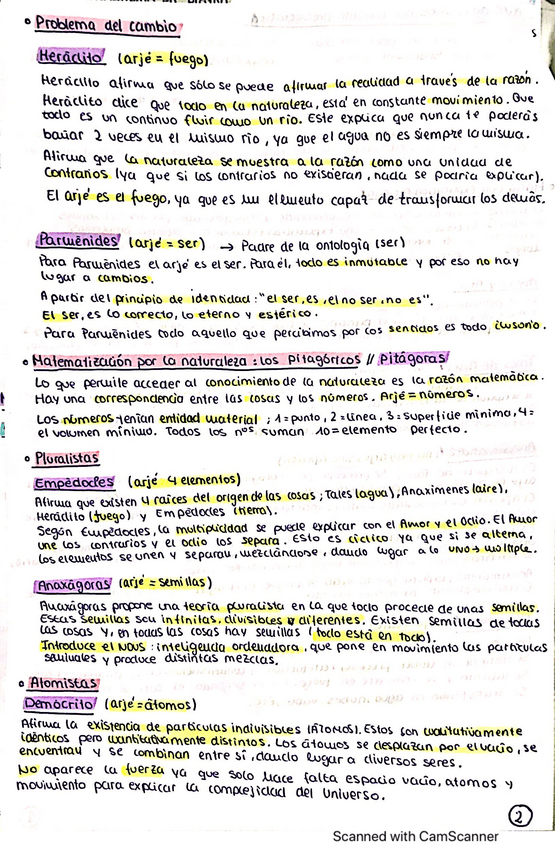 • Problema del cambio
5
Heráclito (arjé = fuego)
Heráclito afirma que sólo se puede afirmar la realidad a través de la razón.
Heráclito dice que todo en la naturaleza, está en constante movimiento. Que
todo es un continuo fluir como un río. Este explica que nunca te poderás
bañar 2 veces en el mismo río, ya que el agua no es siempre la misma.
Afirma que la naturaleza se muestra a la razón como una unidad de
contrarios (ya que si los contrarios no existieran, nada se podría explicar).
El arjé es el fuego, ya que es un elemento capaz de transformar los demás.
Parménides (arjé = ser) → Padre de la ontología (ser)
Para Parménides el arjé es el ser. Para él, todo es inmutable y por eso no hay
lugar a cambios.
A partir del principio de identidad: "el ser, es, el no ser, no es".
El ser, es lo correcto, lo eterno y estérico.
Para Parménides todo aquello que percibimos por los sentidos es todo ilusorio.
• Matematización por la naturaleza: los Pitagóricos // Pitágoras
Lo que permite acceder al conocimiento de la naturaleza es la razón matemática.
Hay una correspondencia entre las cosas y los números. Arjé = números.
Los números tenían entidad material; 1=punto, 2=línea, 3=superficie mínima, 4=
el volumen mínimo. Todos los nºs suman 10=elemento perfecto.
• Pluralistas
Empédocles (arjé 4 elementos)
Afirma que existen 4 raíces del origen de las cosas; Tales (agua), Anaxímenes (aire),
Heráclito (fuego) y Empédocles (tierra).
Según Empédocles, la multiplicidad se puede explicar con el Amor y el Odio. El Amor
une los contrarios y el odio los separa. Esto es cíclico ya que si se alterna,
los elementos se unen y separan, mezclándose, dando lugar a lo uno → múltiple.
Anaxágoras (arjé = semillas)
Anaxágoras propone una teoría pluralista en la que todo procede de unas semillas.
Estas semillas son infinitas, divisibles y diferentes. Existen semillas de todas
las cosas y, en todas las cosas hay semillas (todo está en todo).
Introduce el NOUS: inteligencia ordenadora, que pone en movimiento las partículas
seminales y produce distintas mezclas.
• Atomistas
Demócrito (arjé=átomos)
Afirma la existencia de partículas indivisibles (ÁTOMOS). Estos son cualitativamente
idénticos pero cuantitativamente distintos. Los átomos se desplazan por el vacío, se
encuentran y se combinan entre sí, dando lugar a diversos seres.
No aparece la fuerza ya que solo hace falta espacio vacío, átomos y
movimiento para explicar la complejidad del Universo.
2
Scanned with CamScanner